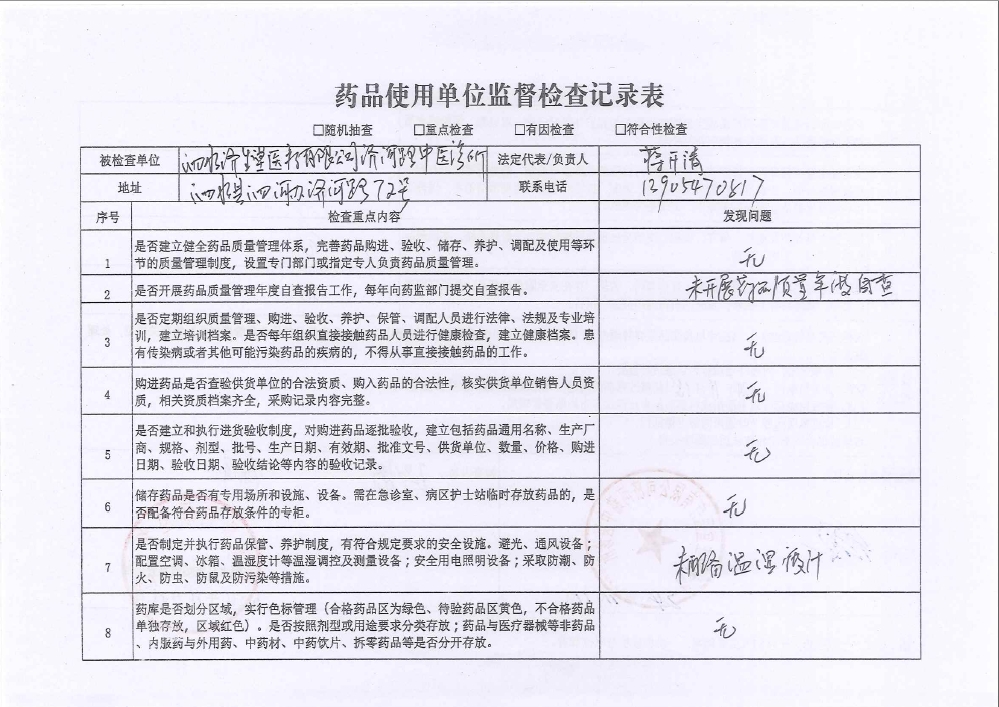 药品使用单位监督检查记录表
□随机抽查 □重点检查 □有因检查 □符合性检查
被检查单位 泗水济生堂医药有限公司济河路中医诊所 法定代表/负责人 蒋开清
地址 泗水县泗河办济河路72号 联系电话 12905470817
序号 检查重点内容 发现问题
1 是否建立健全药品质量管理体系，完善药品购进、验收、储存、养护、调配及使用等环
节的质量管理制度，设置专门部门或指定专人负责药品质量管理。 无
2 是否开展药品质量管理年度自查报告工作，每年向药监部门提交自查报告。 未开展药品质量年度自查
3 是否定期组织质量管理、购进、验收、养护、保管、调配人员进行法律、法规及专业培
训，建立培训档案。是否每年组织直接接触药品人员进行健康检查，建立健康档案。患
有传染病或者其他可能污染药品的疾病的，不得从事直接接触药品的工作。 无
4 购进药品是否查验供货单位的合法资质、购入药品的合法性，核实供货单位销售人员资
质，相关资质档案齐全，采购记录内容完整。 无
5 是否建立和执行进货验收制度，对购进药品逐批验收，建立包括药品通用名称、生产厂
商、规格、剂型、批号、生产日期、有效期、批准文号、供货单位、数量、价格、购进
日期、验收日期、验收结论等内容的验收记录。 无
6 储存药品是否有专用场所和设施、设备。需在急诊室、病区护士站临时存放药品的，是
否配备符合药品存放条件的专柜。 无
7 是否制定并执行药品保管、养护制度，有符合规定要求的安全设施。避光、通风设备；
配置空调、冰箱、温湿度计等温湿调控及测量设备；安全用电照明设备；采取防潮、防
火、防虫、防鼠及防污染等措施。 未配备温湿度计
8 药库是否划分区域，实行色标管理（合格药品区为绿色、待验药品区黄色，不合格药品
单独存放，区域红色）。是否按照剂型或用途要求分类存放；药品与医疗器械等非药品
、内服药与外用药、中药材、中药饮片、拆零药品等是否分开存放。 无